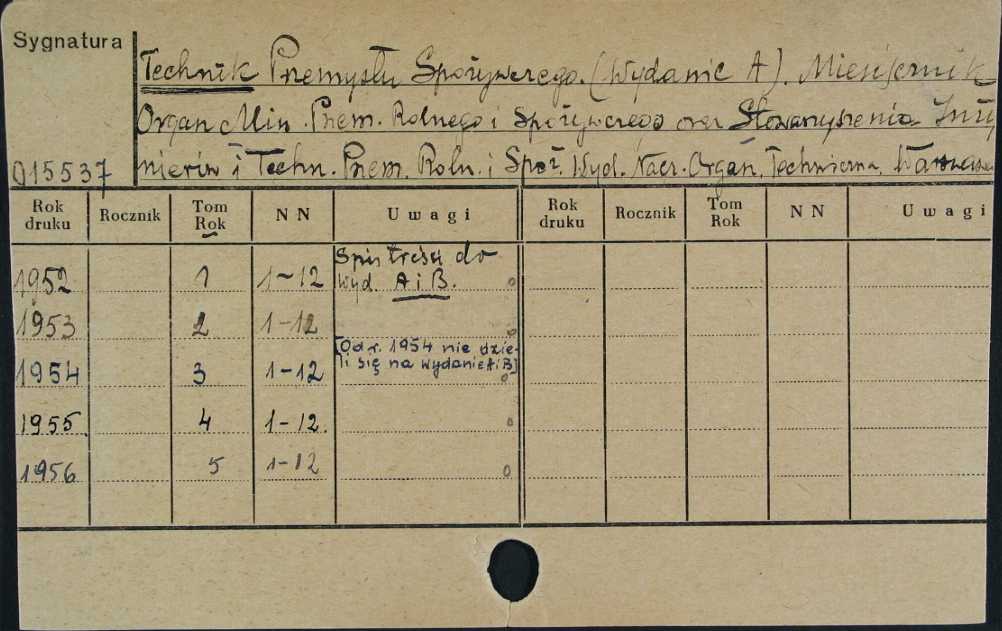 Sygnatura
Technik Przemysłu Spożywczego. (Wydanie A). Miesięcznik
Organ Min. Przem. Rolnego i Spożywczego oraz Stowarzyszenia Inży
015537 nierów i Techn. Przem. Roln. i Spoż. Wyd. Nacz. Organ. Techniczna, Warszawa
Rok druku Rocznik Tom Rok NN Uwagi Rok druku Rocznik Tom Rok NN Uwagi
1952 1 1-12 Spis treści do
wyd. A i B.
1953 2 1-12
[Od r. 1954 nie dzie-
1954 3 1-12 li się na wydanie A i B]
1955 4 1-12.
1956 5 1-12